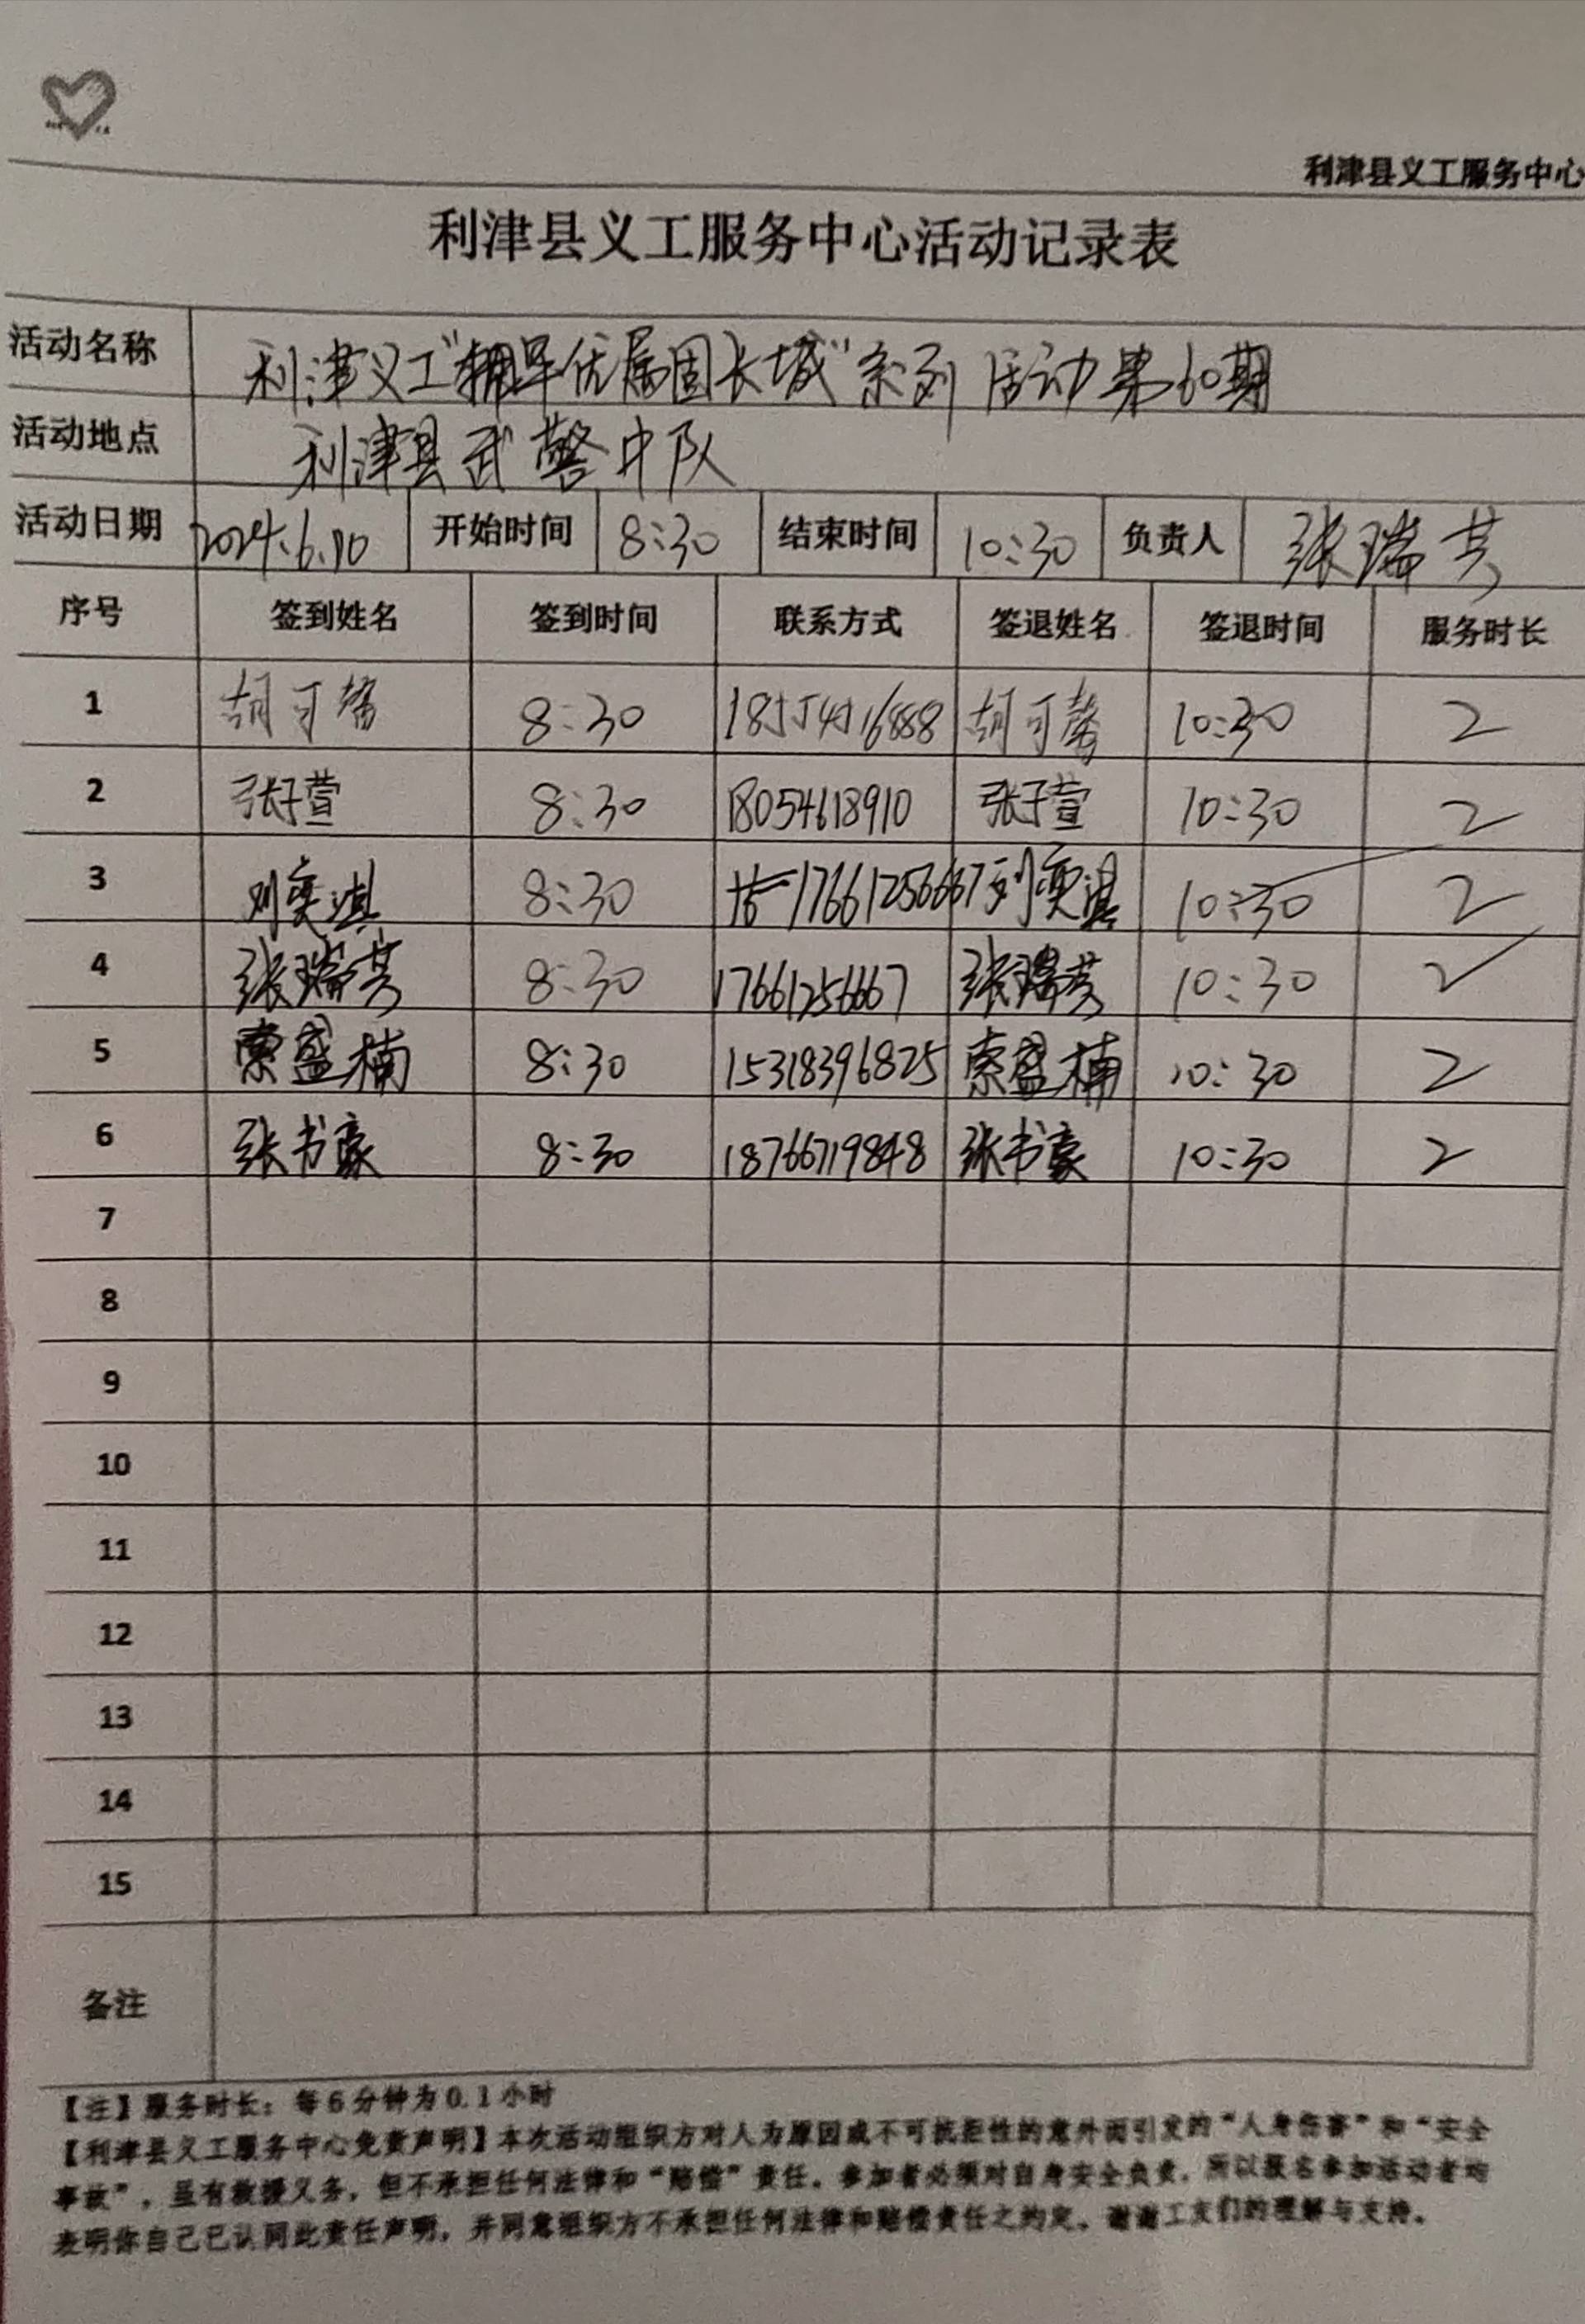 利津县义工服务中心
利津县义工服务中心活动记录表
活动名称 利津义工"拥军优属固长城"系列活动第60期
活动地点 利津县武警中队
活动日期 2024.6.10 开始时间 8:30 结束时间 10:30 负责人 张瑞芸
序号 签到姓名 签到时间 联系方式 签退姓名 签退时间 服务时长
1 胡可馨 8:30 胡可馨 10:30 2
2 张子萱 8:30 18054618910 张子萱 10:30 2
3 刘奕淇 8:30 17661256667 刘奕淇 10:30 2
4 张瑞芸 8:30 17661256667 张瑞芸 10:30 2
5 索盛楠 8:30 15318396825 索盛楠 10:30 2
6 张书豪 8:30 18766719848 张书豪 10:30 2
7
8
9
10
11
12
13
14
15
备注
【注】服务时长：每6分钟为0.1小时
【利津县义工服务中心免责声明】本次活动组织方对人为原因或不可抗拒性的意外而引发的“人身伤害”和“安全
事故”，虽有救援义务，但不承担任何法律和“赔偿”责任。参加者必须对自身安全负责，所以报名参加活动者均
表明你自己已认同此责任声明，并同意组织方不承担任何法律和赔偿责任之约定。谢谢工友们的理解与支持。